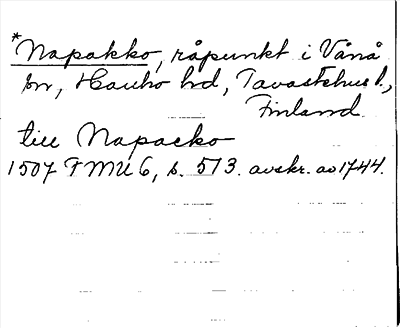 *Napakko, råpunkt i Vånå
sn, Hauho hd, Tavastehus l.,
Finland.
till Napacko
1507 FMU 6, s. 513. avskr. av 1744.